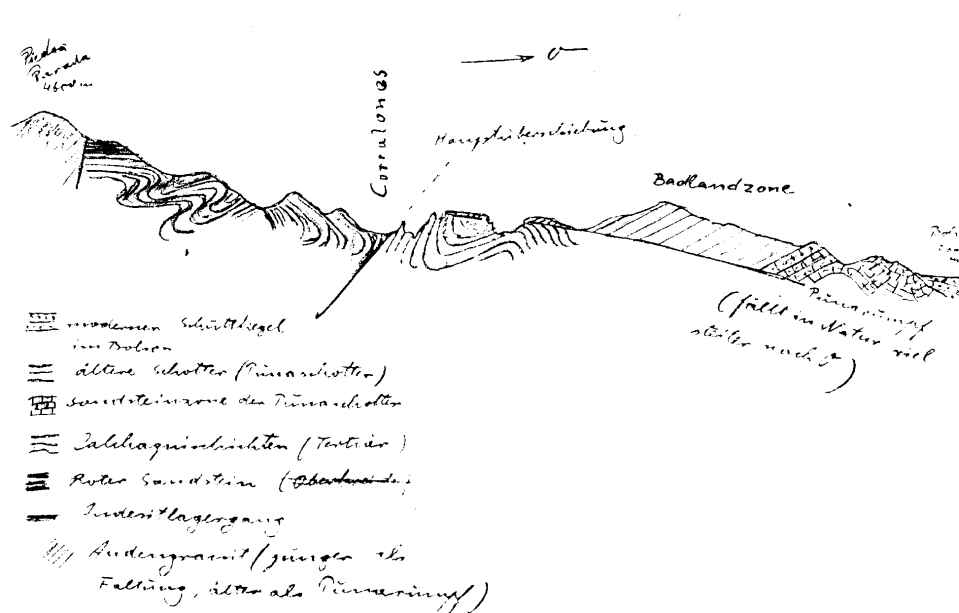 Piedra
Parada
4600 m
O
Corralones
Hauptüberschiebung
Badlandzone
Punarumpf
(fällt in Natur viel
steiler nach O)
modernen Schuttkegel
im Bolson
ältere Schotter (Punaschotter)
Sandsteinzone der Punaschotter
(Tertiär)
Roter Sandstein (Oberkreide)
Andesitlagergang
Andengranit (jünger als
Faltung, älter als Punarumpf)